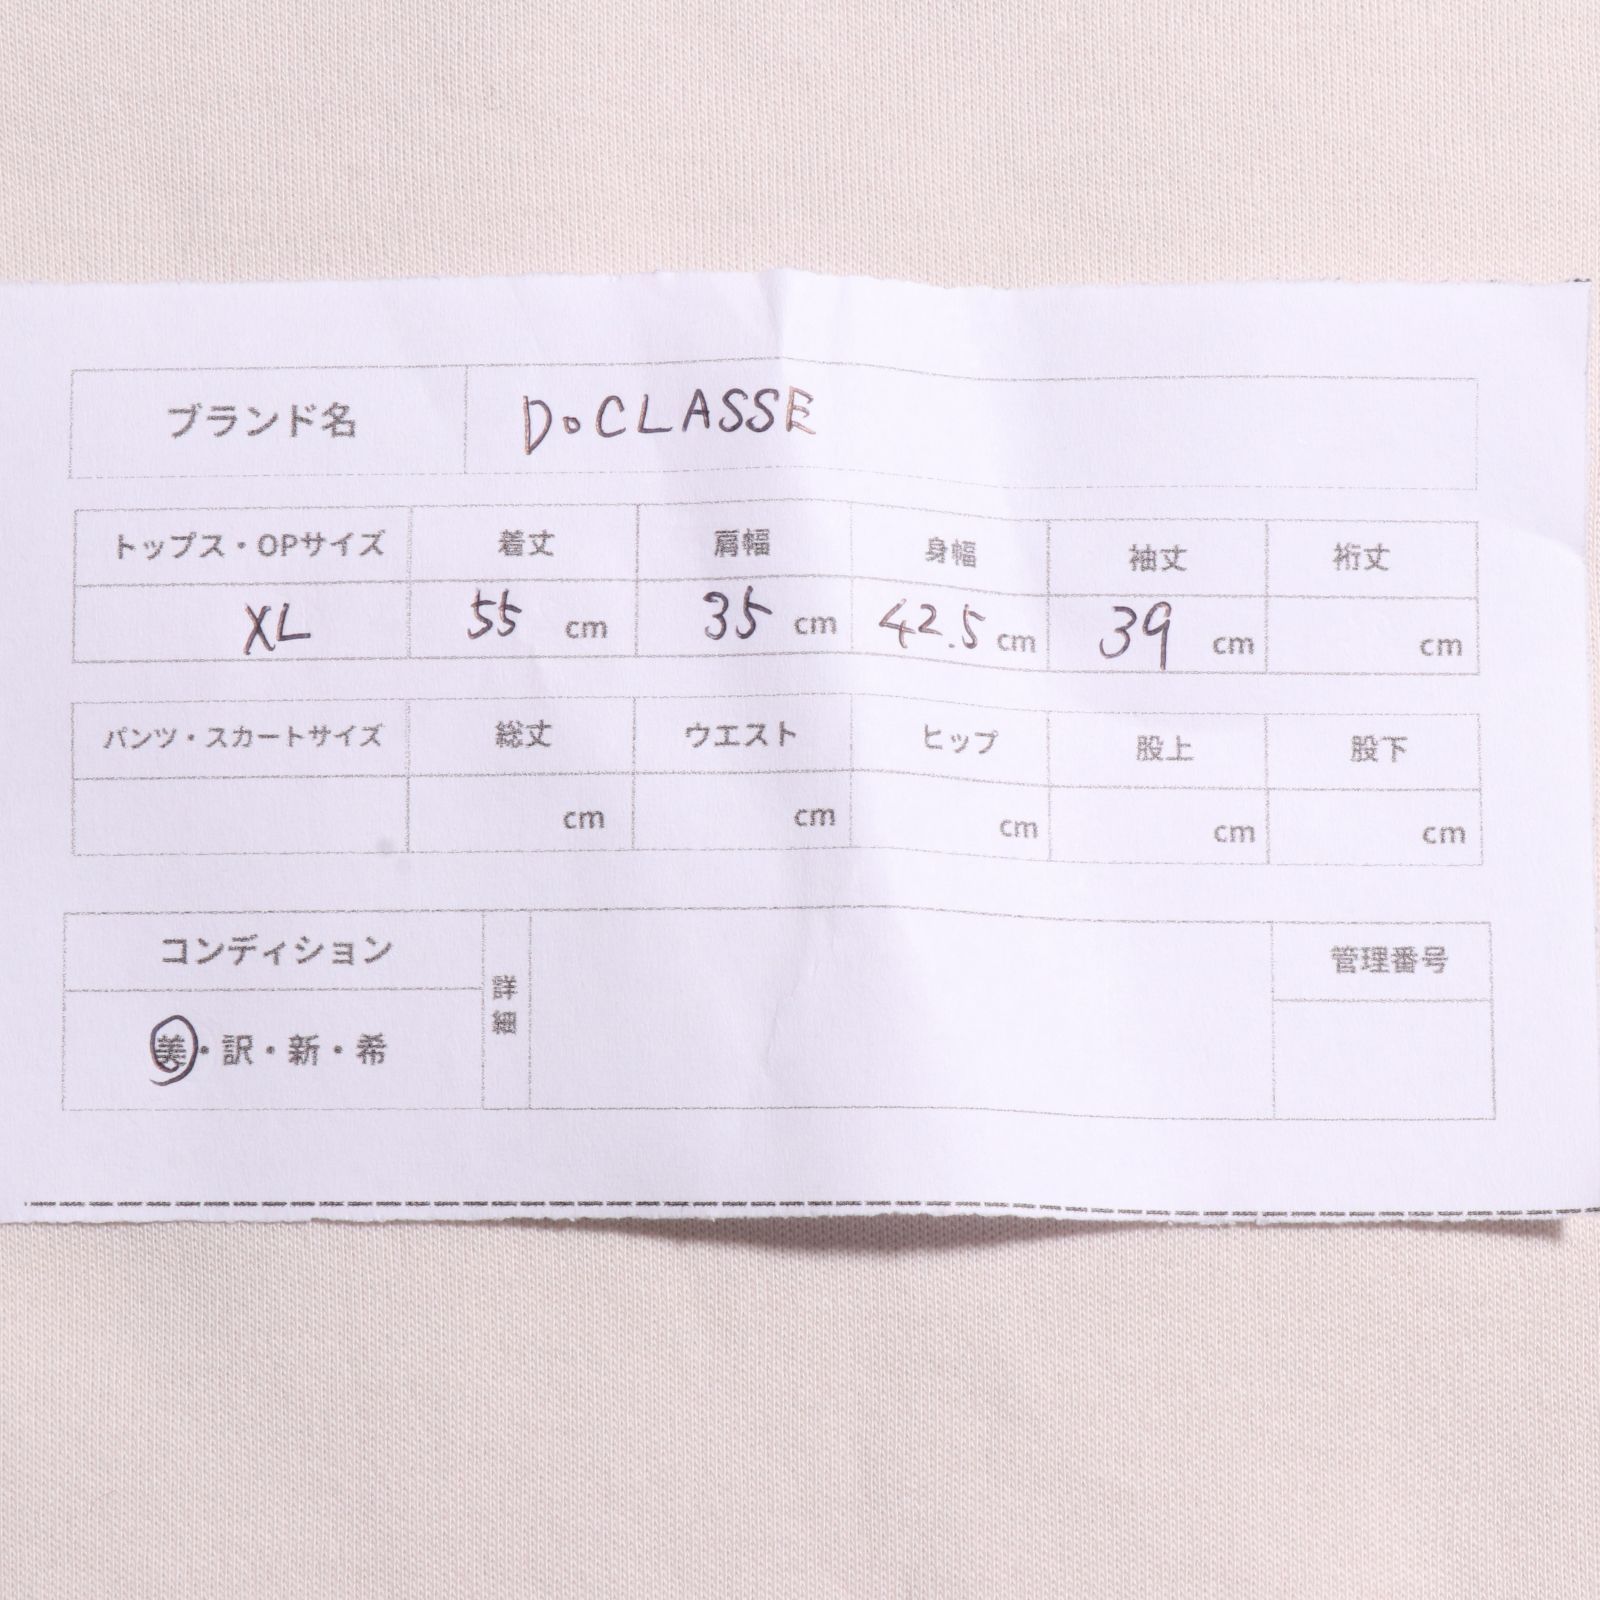 ブランド名 DoCLASSE
トップス・OPサイズ 着丈 肩幅 身幅 袖丈 裄丈
XL 55 cm 35 cm 42.5 cm 39 cm cm
パンツ・スカートサイズ 総丈 ウエスト ヒップ 股上 股下
cm cm cm cm cm
コンディション 詳細 管理番号
美・訳・新・希